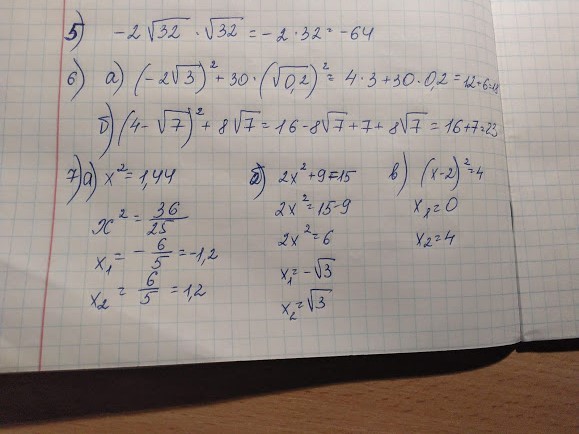 5) -2√32 · √32 = -2 · 32 = -64
6) а) (-2√3)² + 30 · (√0,2)² = 4 · 3 + 30 · 0,2 = 12+6=18
б) (4-√7)² + 8√7 = 16 - 8√7 + 7 + 8√7 = 16+7=23
7) а) x² = 1,44
x² = 36/25
x₁ = -6/5 = -1,2
x₂ = 6/5 = 1,2
б) 2x² + 9 = 15
2x² = 15-9
2x² = 6
x₁ = -√3
x₂ = √3
в) (x-2)² = 4
x₁ = 0
x₂ = 4